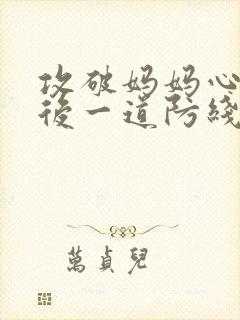 攻破妈妈心
後一道防綫
萬貞兒